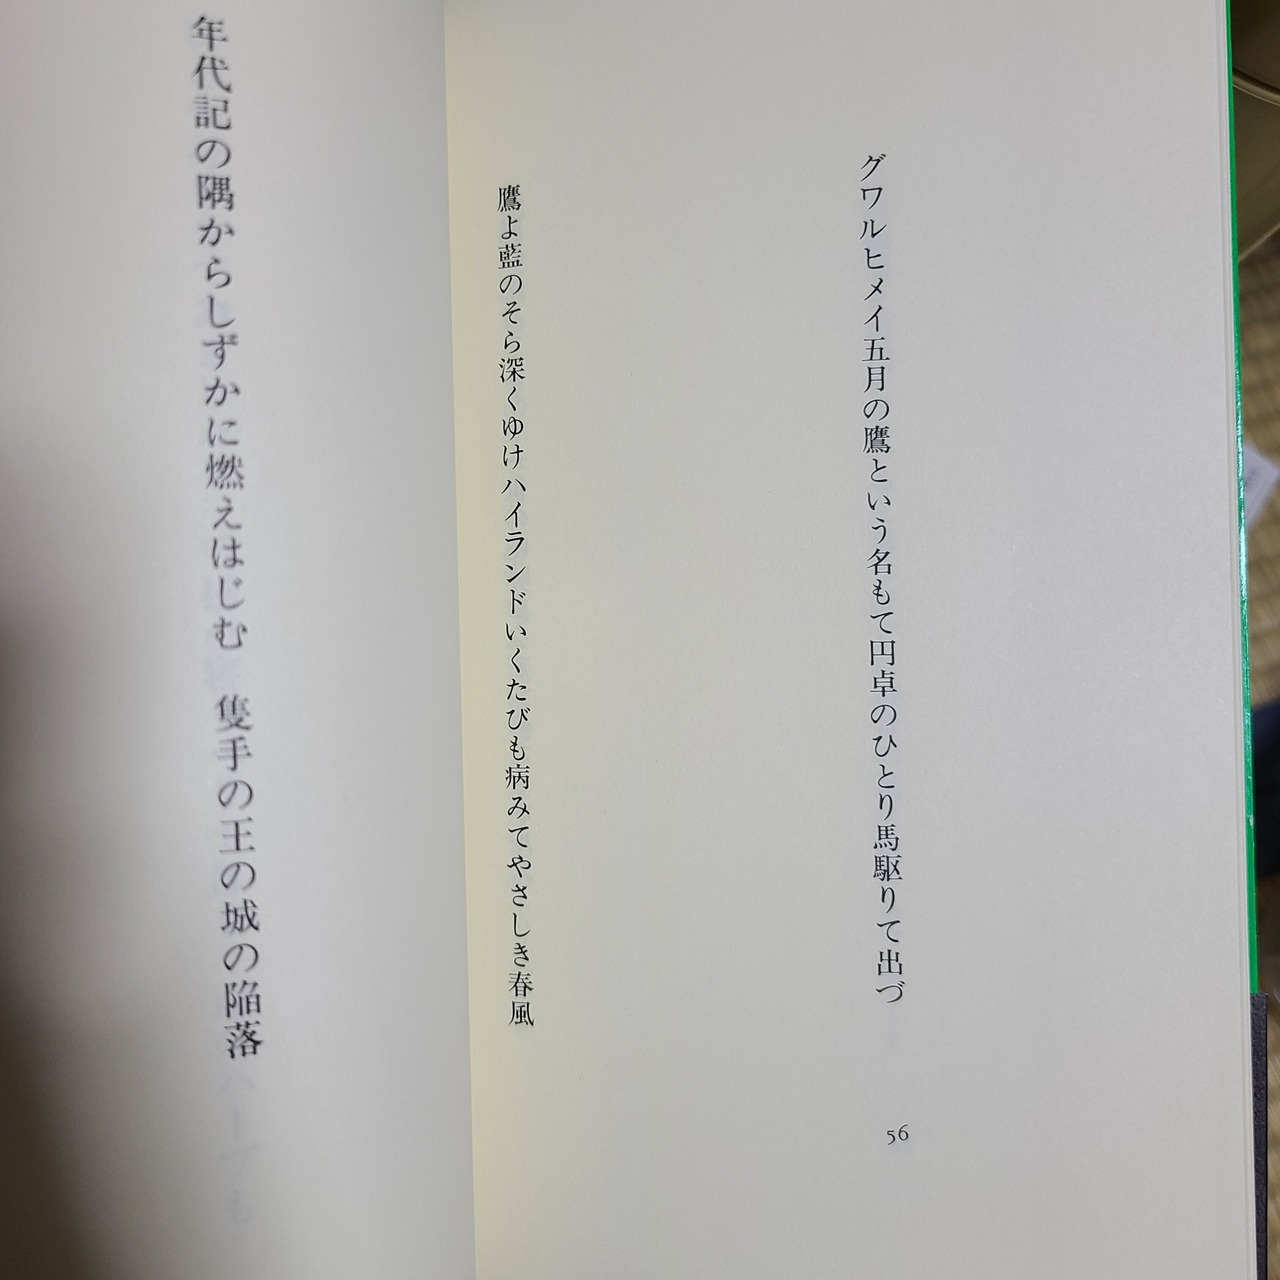 グワルヒメイ五月の鷹という名もて円卓のひとり馬駆りて出づ
鷹よ藍のそら深くゆけハイランドいくたびも病みてやさしき春風
56
年代記の隅からしずかに燃えはじむ　隻手の王の城の陥落